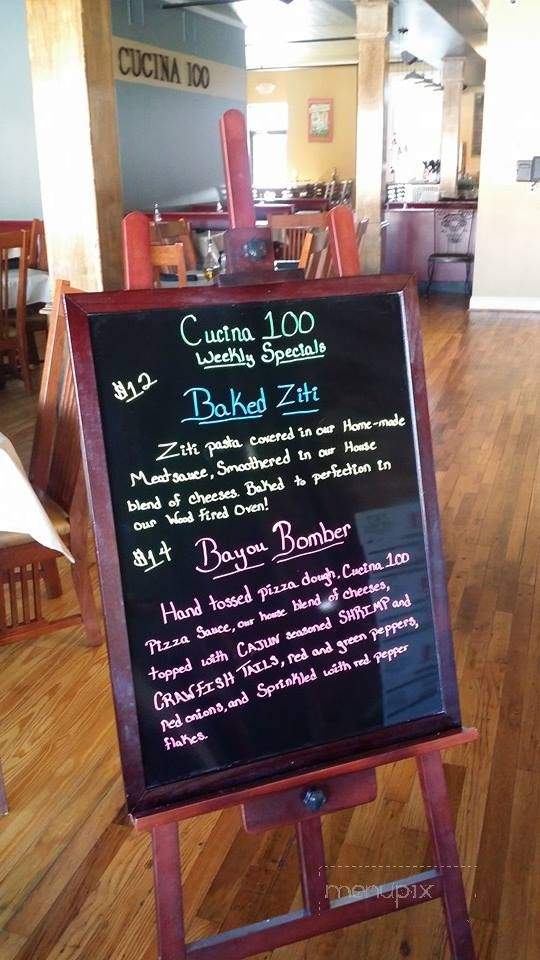 CUCINA 100
Cucina 100
Weekly Specials
$12
Baked Ziti
Ziti pasta covered in our Home-made
Meatsauce, Smoothered in our House
blend of cheeses. Baked to perfection in
our Wood Fired Oven!
$14
Bayou Bomber
Hand tossed pizza dough, Cucina 100
Pizza Sauce, our house blend of cheeses,
topped with CAJUN seasoned SHRIMP and
CRAWFISH TAILS, red and green peppers,
red onions, and Sprinkled with red pepper
flakes.
menupix